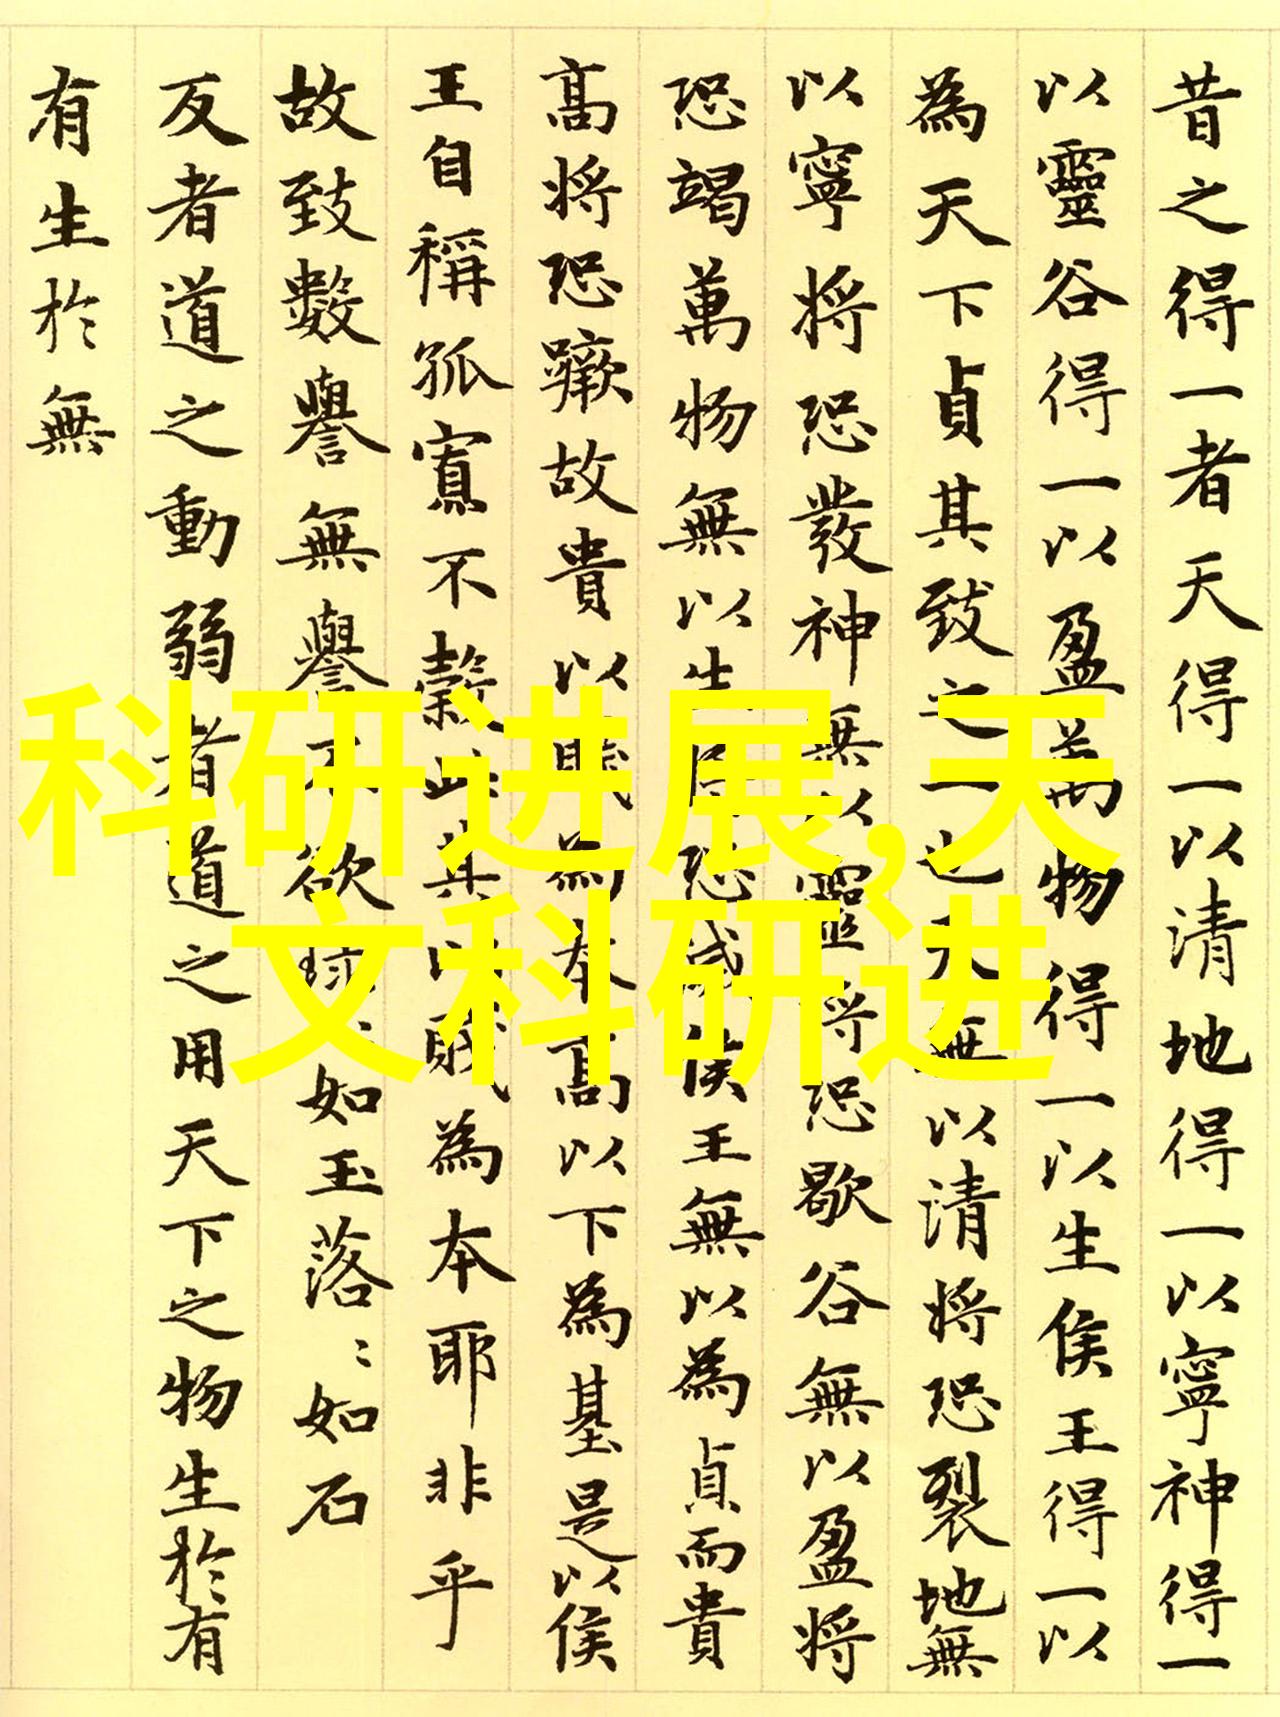 昔之得一者天得一以清地得一以寧神得一
以靈谷得一以盈萬物得一以生侯王得一以
為天下貞其致之一也天無以清將恐裂地無
以寧將恐發神無以靈將恐歇谷無以盈將
恐竭萬物無以生將恐滅侯王無以為貞而貴
高將恐蹶故貴以賤為本高以下為基是以侯
王自稱孤寡不穀此其以賤為本耶非乎
故致數譽無譽不欲琭〻如玉落〻如石
反者道之動弱者道之用天下之物生於有
有生於無
科研进展,天
文科研进